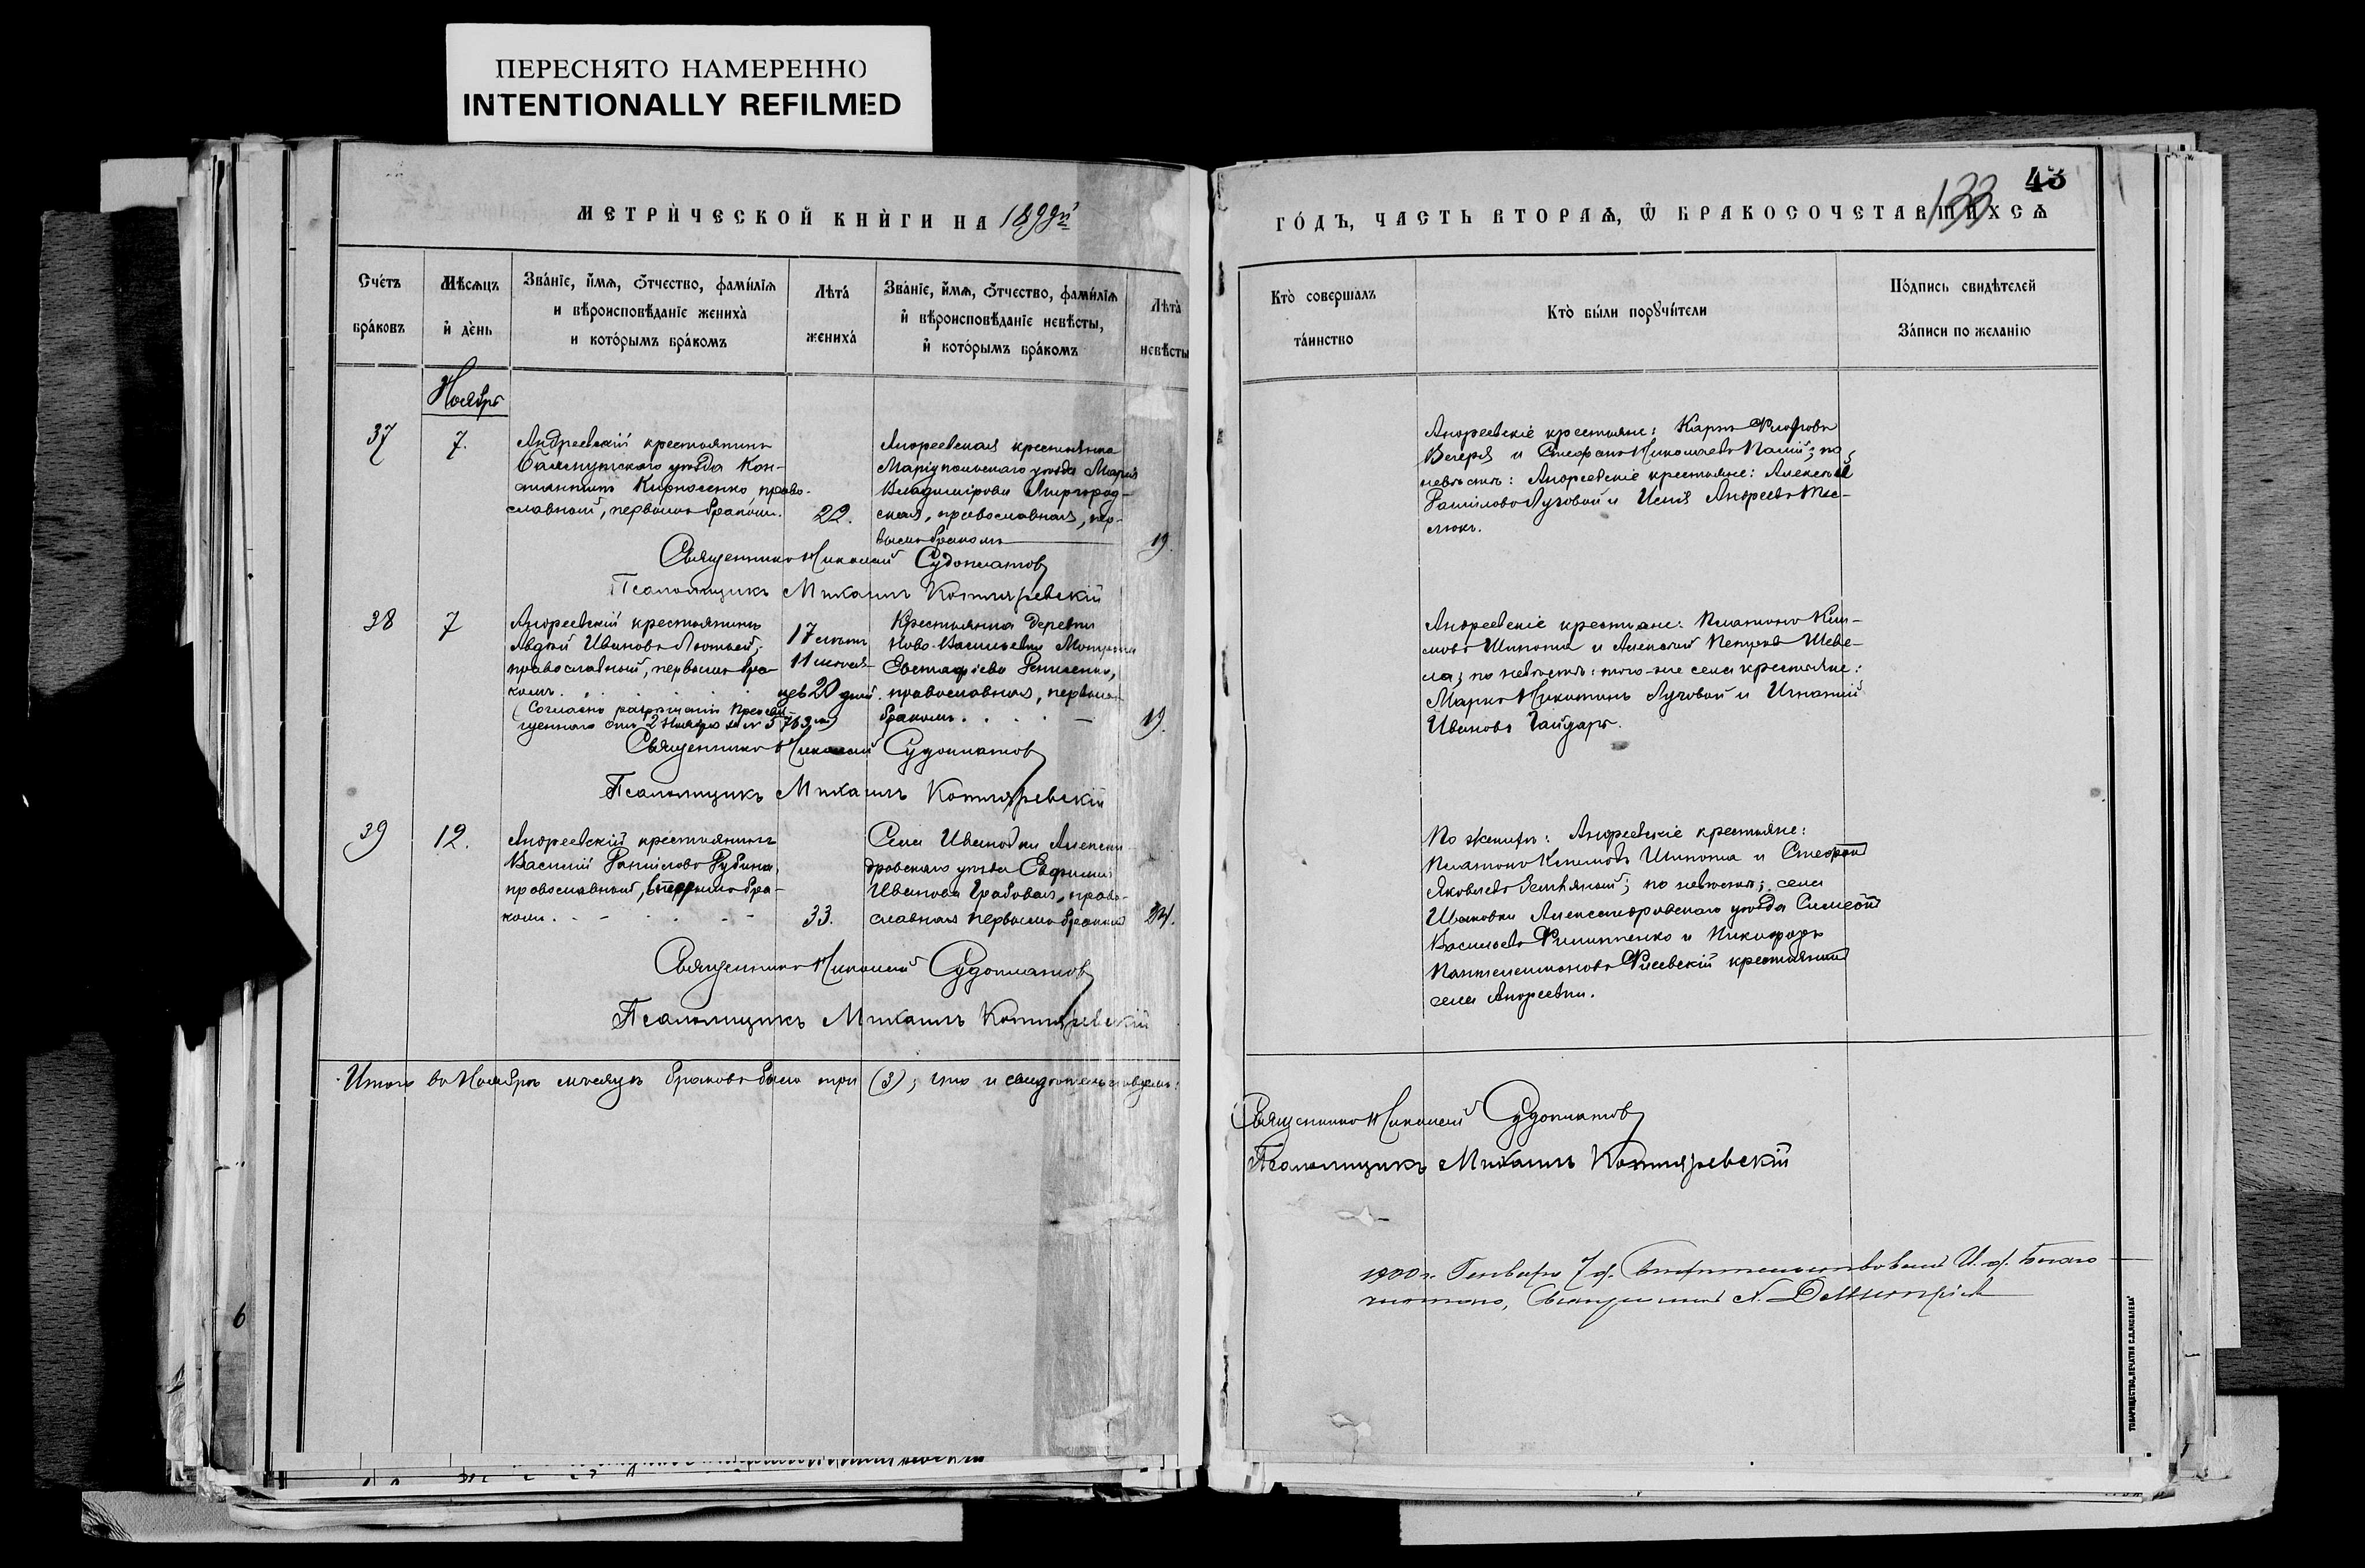 ПЕРЕСНЯТО НАМЕРЕННО
INTENTIONALLY REFILMED
МЕТРИЧЕСКОЙ КНИГИ НА 1899й
Счетъ браковъ
Мѣсяцъ и день
Званіе, имя, отчество, фамилія
и вѣроисповѣданіе жениха
и которымъ бракомъ
Лѣта жениха
Званіе, имя, отчество, фамилія
и вѣроисповѣданіе невѣсты,
и которымъ бракомъ
Лѣта невѣсты
Ноябрь
37
7.
Андреевскій крестьянинъ
Бахмутскаго уѣзда Кон-
стантинъ право-
славный, первымъ бракомъ.
22.
Андреевская крестьянка
Маріупольскаго уѣзда Марія
Владимірова Миргород-
ская, православная, пер-
вымъ бракомъ
19.
Священникъ Николай Судоплатовъ
Псаломщикъ Михаилъ Котляревскій
38
7
Андреевскій крестьянинъ
Авдій Ивановъ Лютый,
православный, первымъ бра-
комъ.
(Согласно разрѣшенія Преосвя-
щеннаго отъ 2 Ноября за № 5763мъ)
17 лѣтъ
11 мѣся-
цевъ 20 дней.
Крестьянка деревни
Ново-Васильевки
Евстафіева
православная, первымъ
бракомъ.
19.
Священникъ Николай Судоплатовъ
Псаломщикъ Михаилъ Котляревскій
39
12.
Андреевскій крестьянинъ
Василій Даниловъ
православный, бра-
комъ.
33.
Села Ивановки Алексан-
дровскаго уѣзда Евфимія
Иванова Грабовая, право-
славная первымъ бракомъ
24.
Священникъ Николай Судоплатовъ
Псаломщикъ Михаилъ Котляревскій
Итого въ Ноябрѣ мѣсяцѣ браковъ было три (3); что и свидѣтельствуемъ:
6
43
133
ГОДЪ, ЧАСТЬ ВТОРАЯ, Ѿ БРАКОСОЧЕТАВШИХСЯ
Кто совершалъ
таинство
Кто были поручители
Подпись свидѣтелей
Записи по желанію
Андреевскіе крестьяне: Карпъ
Вечеря и Стефанъ Николаевъ Палій; по
невѣстѣ: Андреевскіе крестьяне: Алексѣй
Даниловъ Луговой и Исаія Андреевъ
Андреевскіе крестьяне: Платонъ Кли-
мовъ Шинота и Алексѣй Петровъ Шеве-
ла; по невѣстѣ: того-же села крестьяне:
Марко Никитинъ Луговой и Игнатій
Ивановъ Гайдаръ.
По женихѣ: Андреевскіе крестьяне:
Платонъ Климовъ Шинота и Стефанъ
Яковлевъ Земляный; по невѣстѣ; села
Ивановки Александровскаго уѣзда Симеонъ
Васильевъ Филиппенко и Никифоръ
Пантелеимоновъ крестьянинъ
села Андреевки.
Священникъ Николай Судоплатовъ
Псаломщикъ Михаилъ Котляревскій
1900 г. Генваря 7 д. И. д. Благо-
чиннаго, Священникъ
ТОВАРИЩЕСТВО „ПЕЧАТНЯ С.П.ЯКОВЛЕВА"